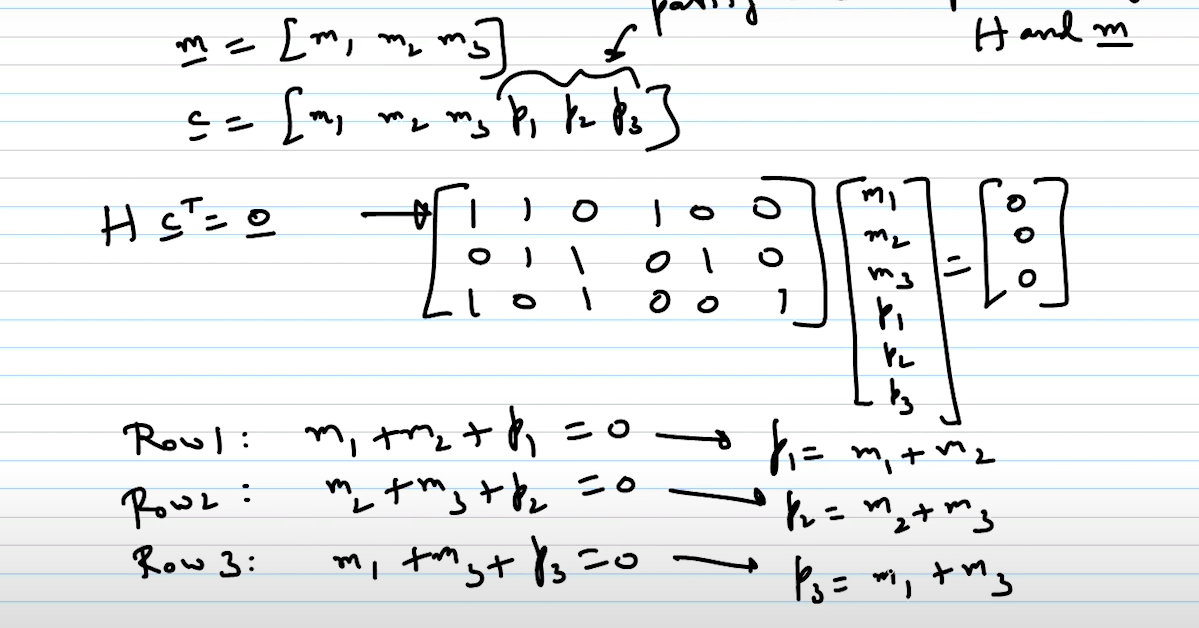 parity
H and m
m = [m₁ m₂ m₃]
c = [m₁ m₂ m₃ p₁ p₂ p₃]
H cᵀ = 0 → [1 1 0 1 0 0] [m₁] = [0]
[0 1 1 0 1 0] [m₂] [0]
[1 0 1 0 0 1] [m₃] [0]
p₁
p₂
p₃
Row 1: m₁ + m₂ + p₁ = 0 → p₁ = m₁ + m₂
Row 2: m₂ + m₃ + p₂ = 0 → p₂ = m₂ + m₃
Row 3: m₁ + m₃ + p₃ = 0 → p₃ = m₁ + m₃